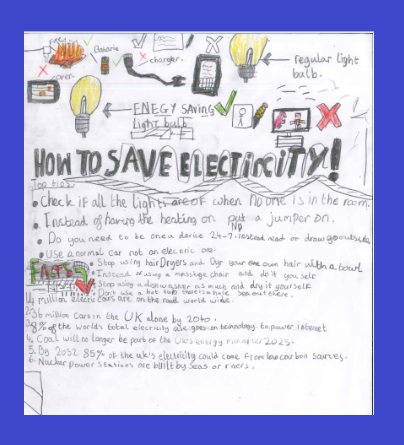 Batarie
charger.
oven.
regular light
bulb.
ENEGY SAVING
light bulb
HOW TO SAVE ELECTIRCITY!
TOP TIPS:
Check if all the lights are of when no one is in the room.
Instead of having the heating on put a jumper on.
Do you need to be on a device 24-7. instead read or draw go outside
Use a normal car not an electric one.
Stop using hair Dryers and Dyr your own hair with a bowl
Instead of using a massage chair and do it you self
Stop using a dishwasher as much and dry it yourself
Don't use a hot tub there is a
FACTS
1.4 million electric cars are on the road world wide.
2.36 million cars in the UK alone by 2040.
8% of the worlds total elecrisity use goes on technology to power internet
4. Coal will no longer be part of the energy 2025.
5. By 2032 85% of the uk's electricity could come from low carbon sources.
6. Nuclear power stations are biult by seas or rivers.